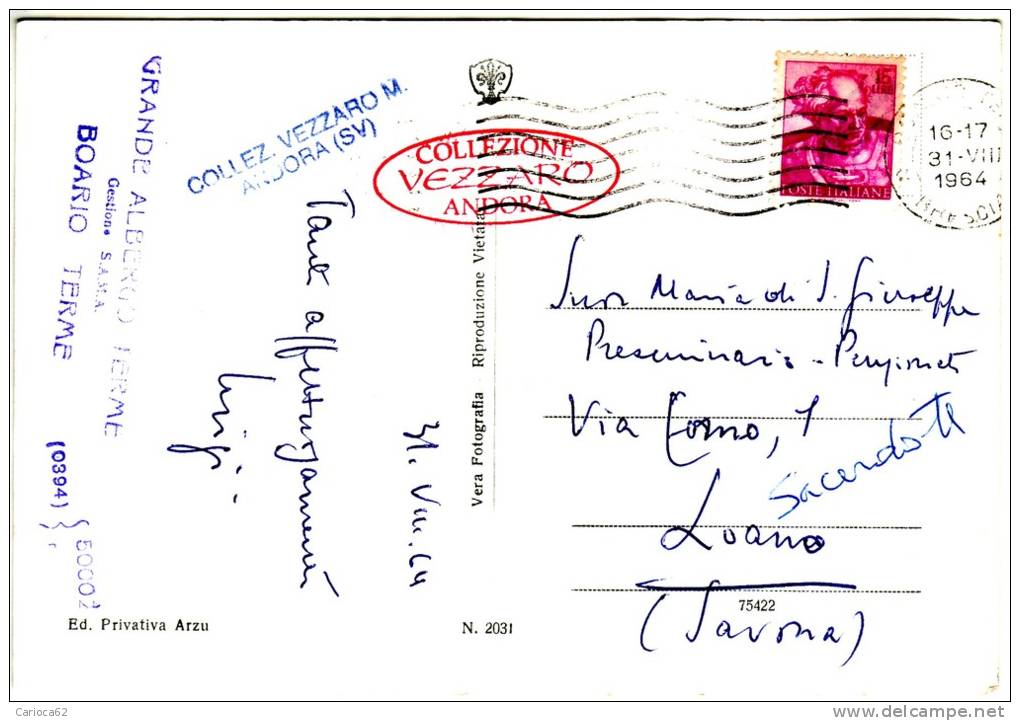 GRANDE ALBERGO TERME
Gestione S.A.M.A.
BOARIO TERME
(0394) 50002
COLLEZ. VEZZARO M.
ANDORA (SV)
COLLEZIONE
VEZZARO
ANDORA
15
LIRE
POSTE ITALIANE
16-17
31-VIII
1964
Tanti affettuosamente
Luigi.
31.VIII.64
Vera Fotografia - Riproduzione Vietata
Suor Maria di S. Giuseppe
Preseminario -
Via Como, 1
Sacerdote
Loano
(Savona)
75422
Ed. Privativa Arzu
N. 2031
Carioca62
delcampe.net